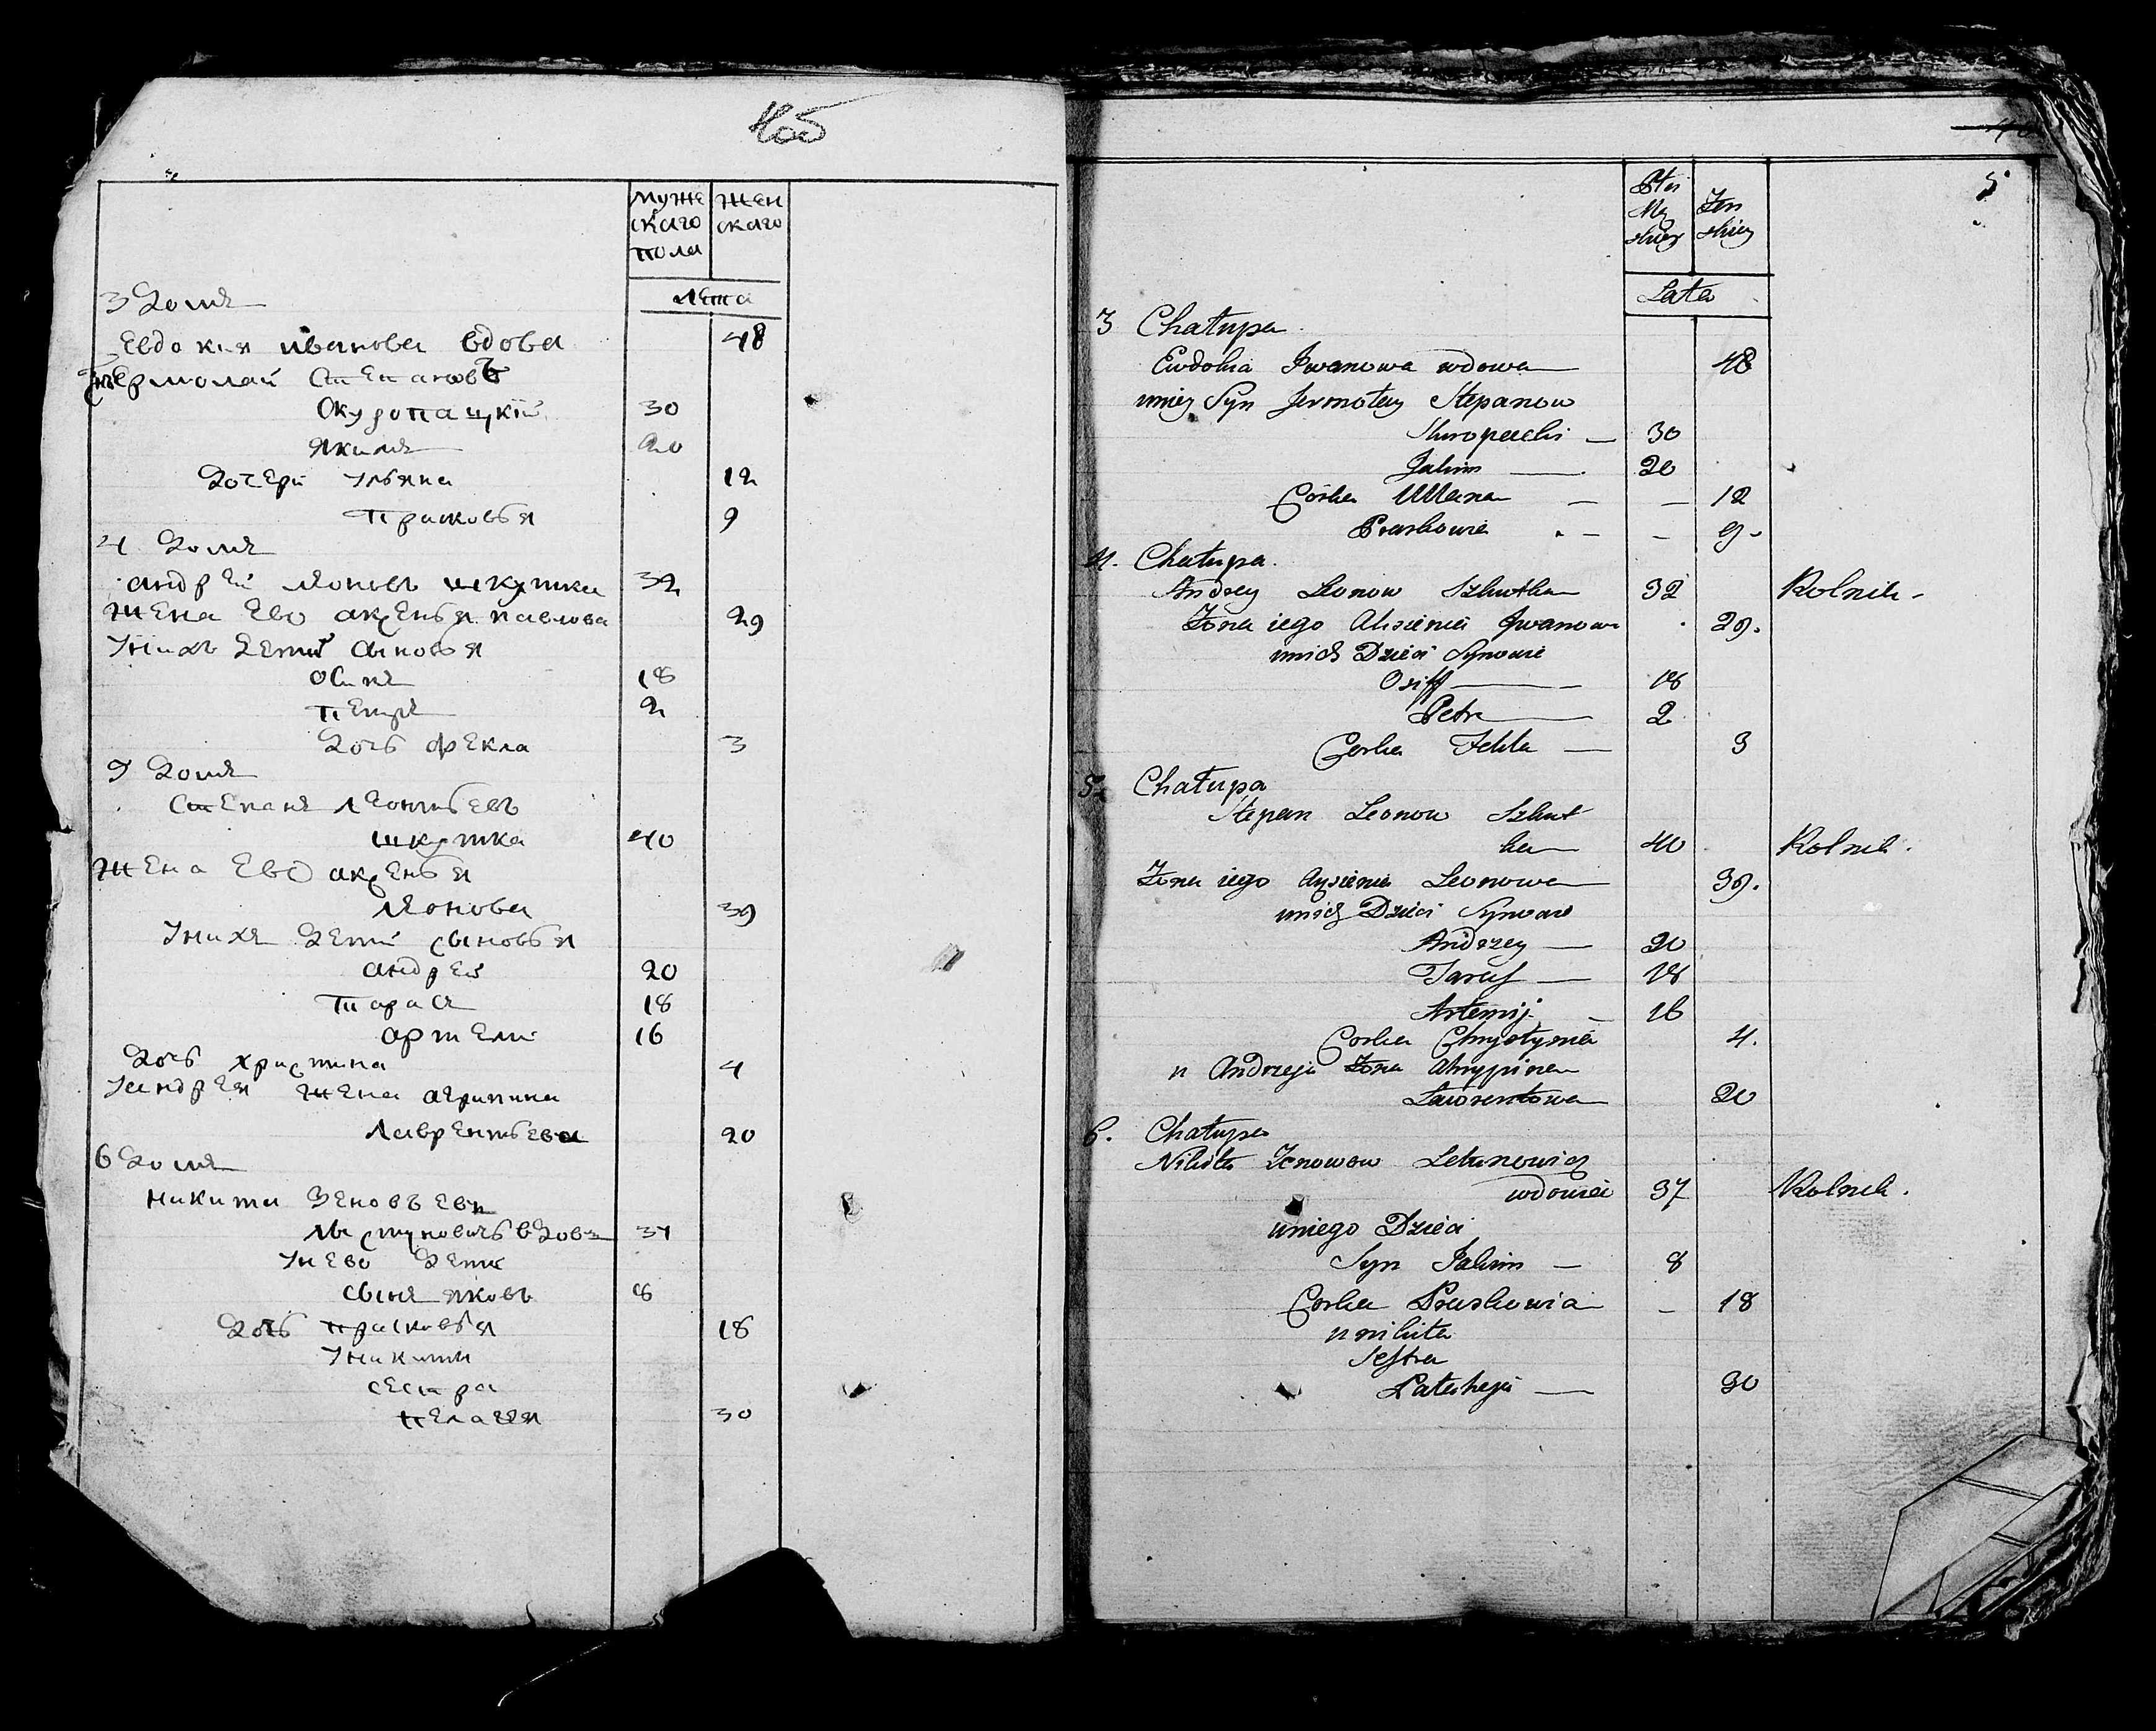 165
муже
скаго
пола
жен
скаго
лета
3 Домъ
Евдокия иванова вдова 48
Ермолай Степановъ
Скуропацкiй 30
Якимъ 20
Дочери Ульяна 12
Прасковья 9
4 Домъ
андрей Леоновъ шкутка 32
жена Ево аксенья павлова 29
Унихъ Дети сыновья
Осипъ 18
Петръ 2
Дочь фекла 3
5 Домъ
Степанъ Леонтьевъ
шкутка 40
жена Ево аксенья
Леонова 39
Унихъ Дети сыновья
андрей 20
Тарасъ 18
артеми 16
Дочь христина 4
Уандрея жена агрипина
Лаврентьева 20
6 Домъ
никита Зеновъевъ
вдовъ 37
Унево Дети
сынъ яковъ 8
Дочь прасковья 18
Уникиты
сестра
пелагея 30
5
Płci
Mę
skiey
Żen
skiey
Lata
3 Chałupa
Ewdokia Iwanowa wdowa 48
uniey Syn Jermołay Stepanow
Skuropacki — 30
Jakim — 20
Corka Uliana — — 12
Praskowia - — - 9.
4. Chałupa.
Andrey Leonow Szkutka 32 Rolnik -
Żona iego Aksienia Iwanowa 29.
unich Dzieci Synowie
Osiff — 18
Petr — 2
Corka Fekla — 3
5. Chałupa
Stepan Leonow Szkut
ka — 40 Rolnik.
Żona iego Axienia Leonowa 39.
unich Dzieci Synowie
Andrzey — 20
Taras — 18
Artemij — 16
Corka Chrystynia 4.
u Andrzeja Żona Ahrypina
Lawrentowa 20
6. Chałupa
Nikita Zenowow Letunowicz
wdowiec 37 Rolnik.
uniego Dzieci
Syn Jakim — 8
Corka Praskowia - 18
u nikita
Sestra
Palaheja — 30